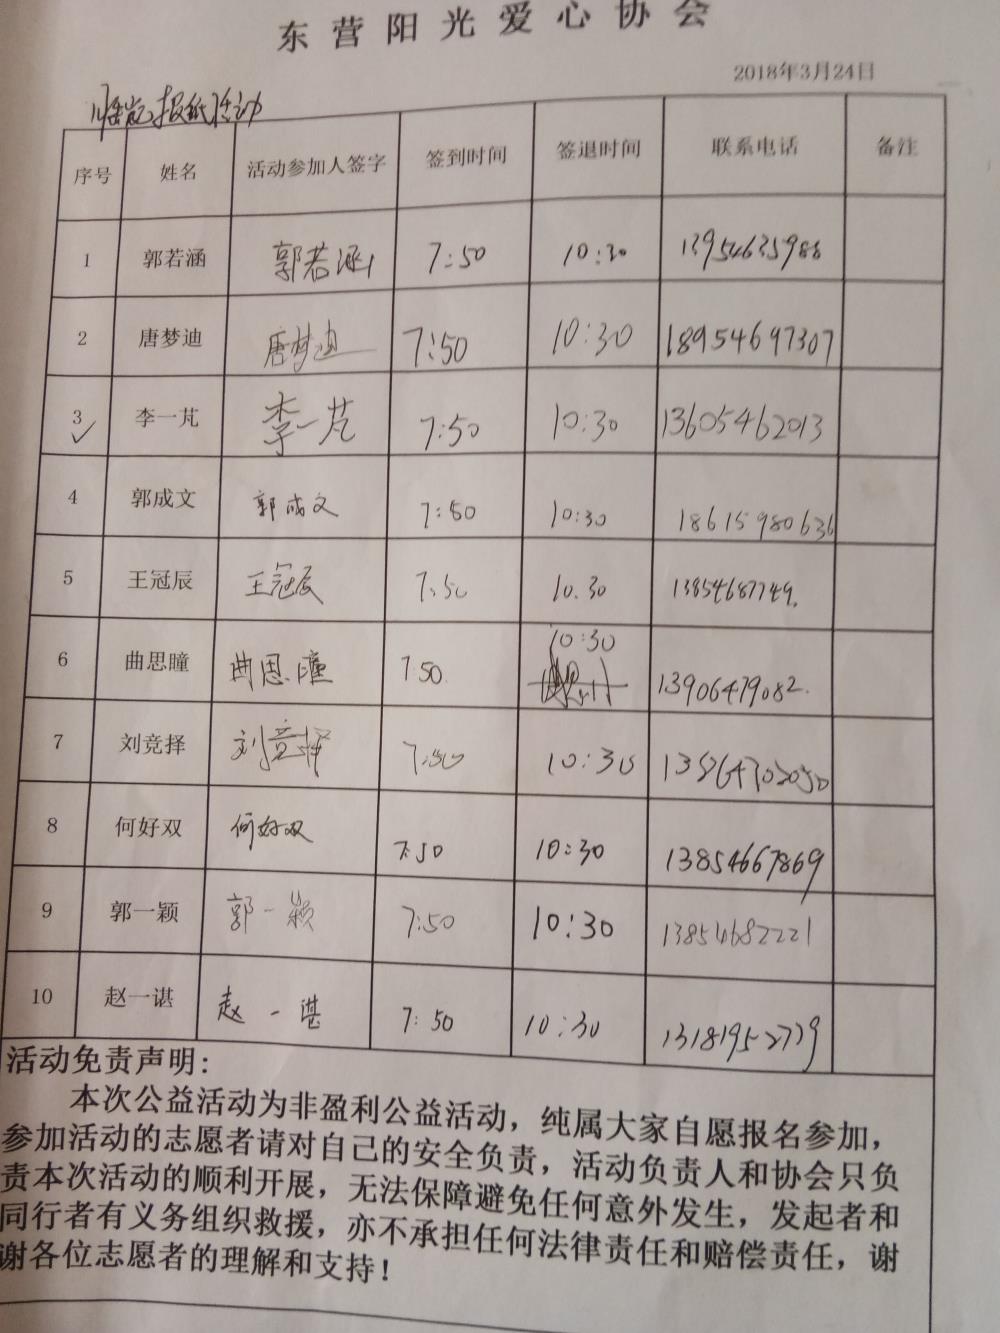 东营阳光爱心协会
2018年3月24日
报纸活动
序号 姓名 活动参加人签字 签到时间 签退时间 联系电话 备注
1 郭若涵 郭若涵 7:50 10:30 13954635988
2 唐梦迪 唐梦迪 7:50 10:30 18954697307
3 李一芃 李一芃 7:50 10:30 13605462013
4 郭成文 郭成文 7:50 10:30 18615980636
5 王冠辰 王冠辰 7:50 10.30 13854687749.
6 曲思瞳 曲思瞳 7:50. 10:30 13906479082.
7 刘竞择 刘竞择 7:50 10:30
8 何好双 何好双 7:50 10:30 13854667869
9 郭一颖 郭一颖 7:50 10:30 13854682221
10 赵一谌 赵一谌 7:50 10:30 13181952779
活动免责声明:
本次公益活动为非盈利公益活动，纯属大家自愿报名参加，
参加活动的志愿者请对自己的安全负责，活动负责人和协会只负
责本次活动的顺利开展，无法保障避免任何意外发生，发起者和
同行者有义务组织救援，亦不承担任何法律责任和赔偿责任，谢
谢各位志愿者的理解和支持！